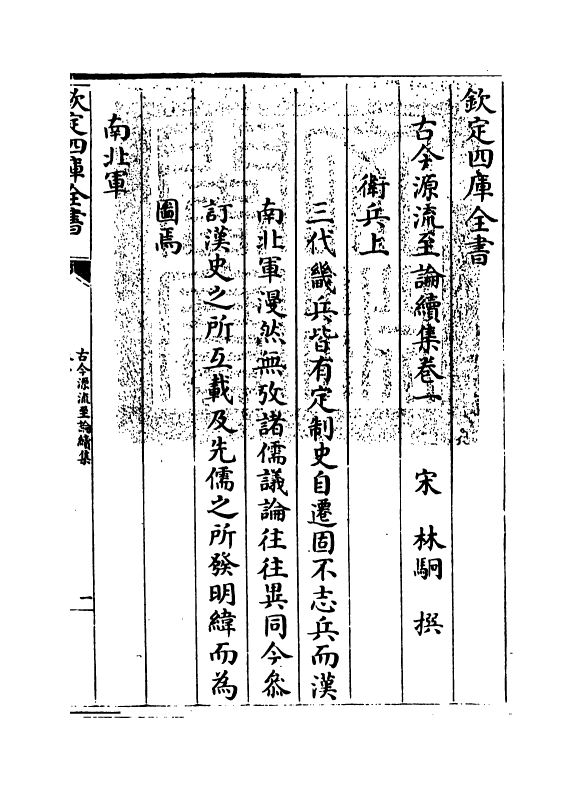 欽定四庫全書
古今源流至論續集卷一　宋　林駉　撰
衛兵上
三代畿兵皆有定制史自遷固不志兵而漢
南北軍漫然無攷諸儒議論往往異同今叅
訂漢史之所互載及先儒之所發明緯而為
圖焉
南北軍
欽定四庫全書
古今源流至論續集
一